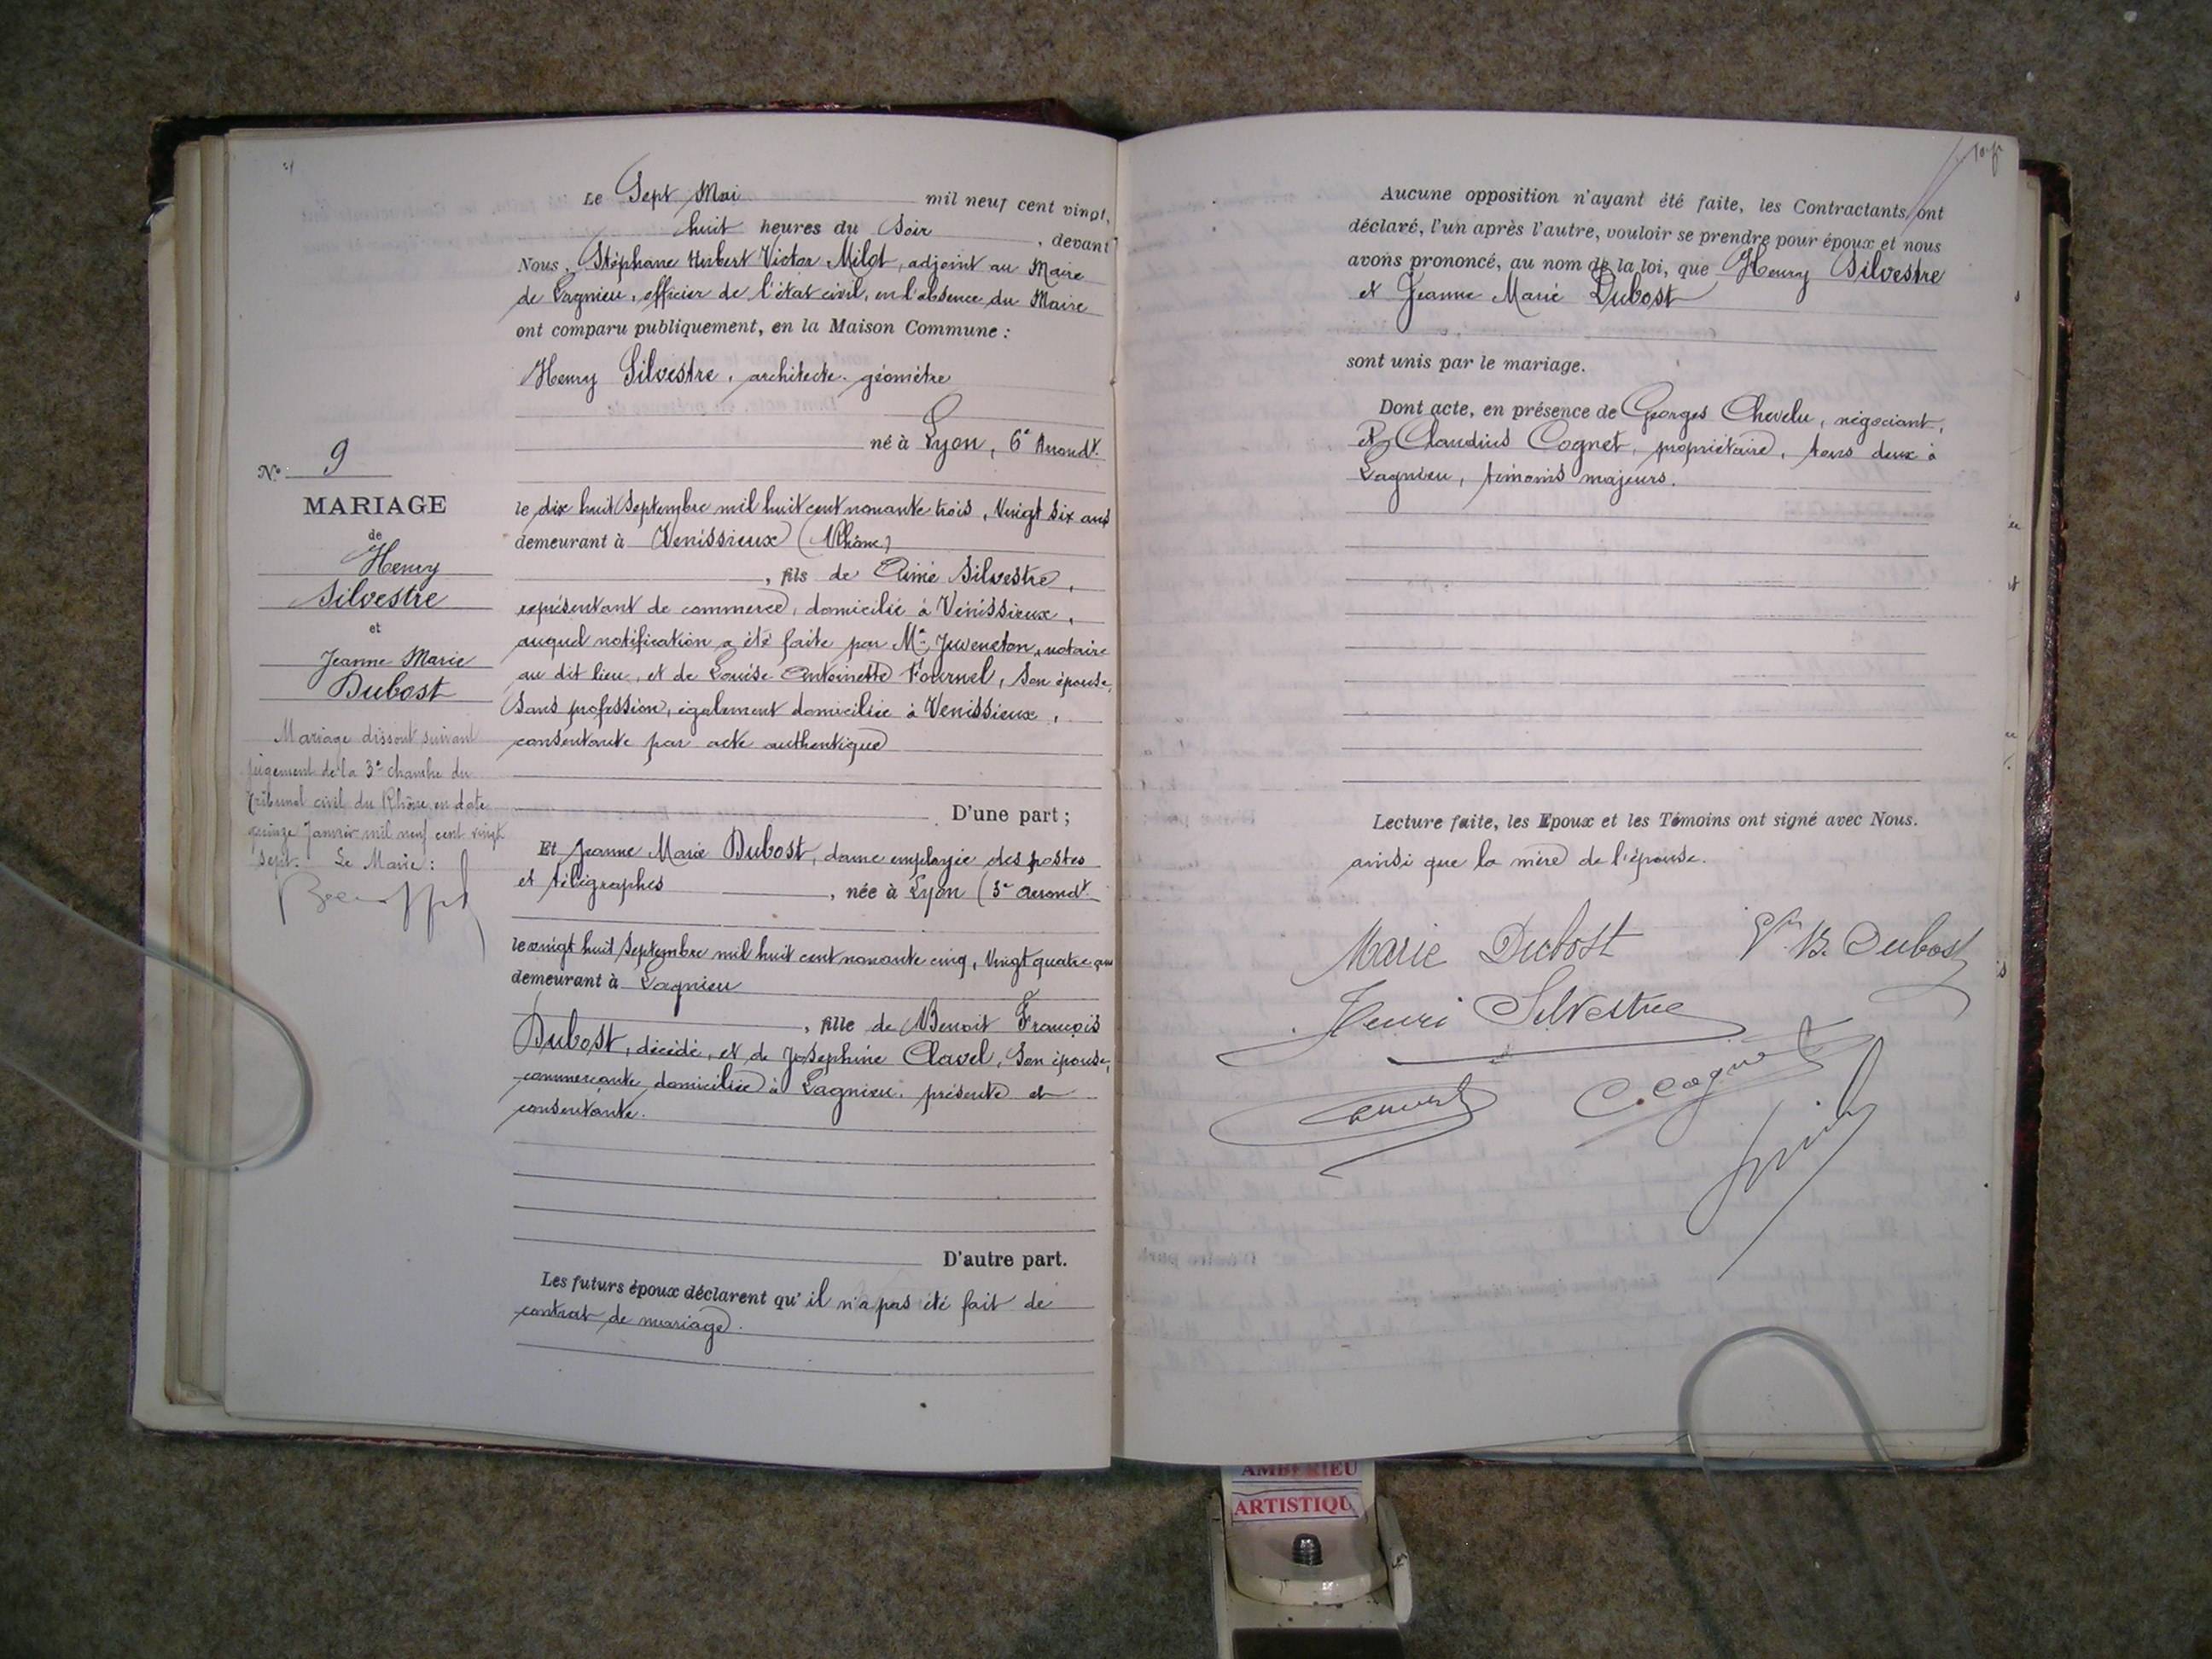 N° 9
MARIAGE
de
Henry
Silvestre
et
Jeanne Marie
Dubost
Mariage dissout suivant
jugement de la 3e chambre du
Tribunal civil du Rhône en date
quinze Janvier mil neuf cent vingt
sept. Le Maire :
Le Sept Mai mil neuf cent vingt,
huit heures du Soir, devant
Nous, Stéphane Hubert Victor Milot, adjoint au Maire
de Lagnieu, officier de l'état civil, en l'absence du Maire
ont comparu publiquement, en la Maison Commune :
Henry Silvestre, architecte-géomètre
né à Lyon, 6e Arrondt.
le dix huit Septembre mil huit cent nonante trois, Vingt six ans
demeurant à Venissieux (Rhône)
, fils de Aimé Silvestre,
représentant de commerce, domicilié à Vénissieux,
auquel notification a été faite par Me Juveneton, notaire
au dit lieu, et de Louise Antoinette Fournel, son épouse,
sans profession, également domiciliée à Venissieux,
consentante par acte authentique
D'une part ;
Et Jeanne Marie Dubost, dame employée des postes
et télégraphes, née à Lyon (3e arrondt.
le vingt huit Septembre mil huit cent nonante cinq, Vingt quatre ans
demeurant à Lagnieu
, fille de Benoit François
Dubost, décédé, et de Joséphine Clavel, son épouse,
commerçante domiciliée à Lagnieu, présente et
consentante.
D'autre part.
Les futurs époux déclarent qu'il n'a pas été fait de
contrat de mariage.
Aucune opposition n'ayant été faite, les Contractants ont
déclaré, l'un après l'autre, vouloir se prendre pour époux et nous
avons prononcé, au nom de la loi, que Henry Silvestre
et Jeanne Marie Dubost
sont unis par le mariage.
Dont acte, en présence de Georges Chevelu, négociant,
et Claudius Cognet, propriétaire, tous deux à
Lagnieu, témoins majeurs.
Lecture faite, les Epoux et les Témoins ont signé avec Nous.
ainsi que la mère de l'épouse.
Marie Dubost
B. Dubost
Henri Silvestre
C. Cognet
AMBERIEU
ARTISTIQU